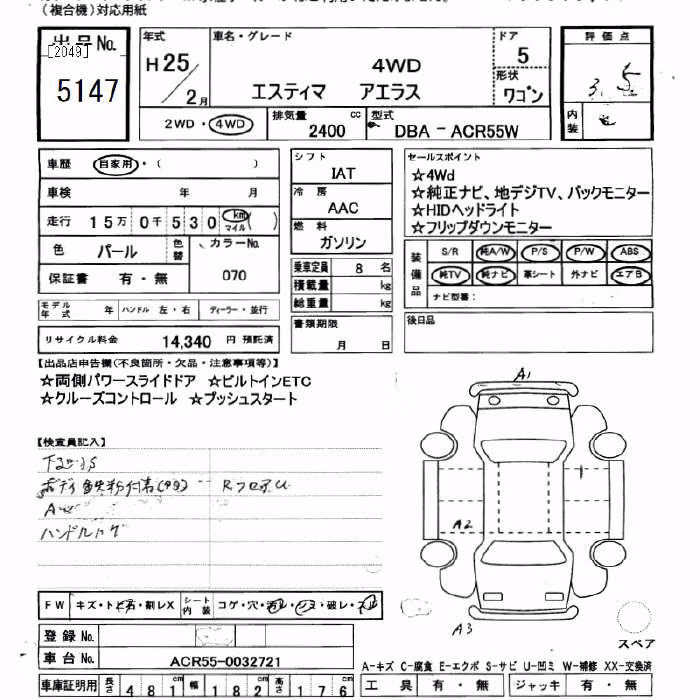 (複合機)対応用紙
出品No.
[2049]
5147
年式
H25
2月
車名・グレード
4WD
エスティマ アエラス
ドア
5
形状
ワゴン
評価点
3.5
内装
2WD・4WD
排気量 cc
2400
型式
DBA-ACR55W
車歴 自家用・( )
車検 年 月
走行 15万0千530 km マイル ( )
色 パール 色替 カラーNo. 070
保証書 有・無
シフト
IAT
冷房
AAC
燃料
ガソリン
乗車定員 8 名
積載量 kg
総重量 kg
セールスポイント
☆4Wd
☆純正ナビ、地デジTV、バックモニター
☆HIDヘッドライト
☆フリップダウンモニター
装備品 S/R 純A/W P/S P/W ABS
純TV 純ナビ 革シート 外ナビ エアB
ナビ型番:
モデル年式 年 ハンドル 左・右 ディーラー・並行
リサイクル料金 14,340 円 預託済
書類期限
月 日
後日品
【出品店申告欄(不良箇所・欠品・注意事項等)】
☆両側パワースライドドア ☆ビルトインETC
☆クルーズコントロール ☆プッシュスタート
【検査員記入】
ボディ鉄粉付着
ハンドル
A1
A2
A3
FW キズ・トビ石・割レX シート内装 コゲ・穴・汚レ・シミ・破レ・スレ
登録No.
車台No. ACR55-0032721
車庫証明用 長さ 481cm 幅 182cm 高さ 176cm
スペア
A-キズ C-腐食 E-エクボ S-サビ U-凹ミ W-補修 XX-交換済
工具 有・無 ジャッキ 有・無